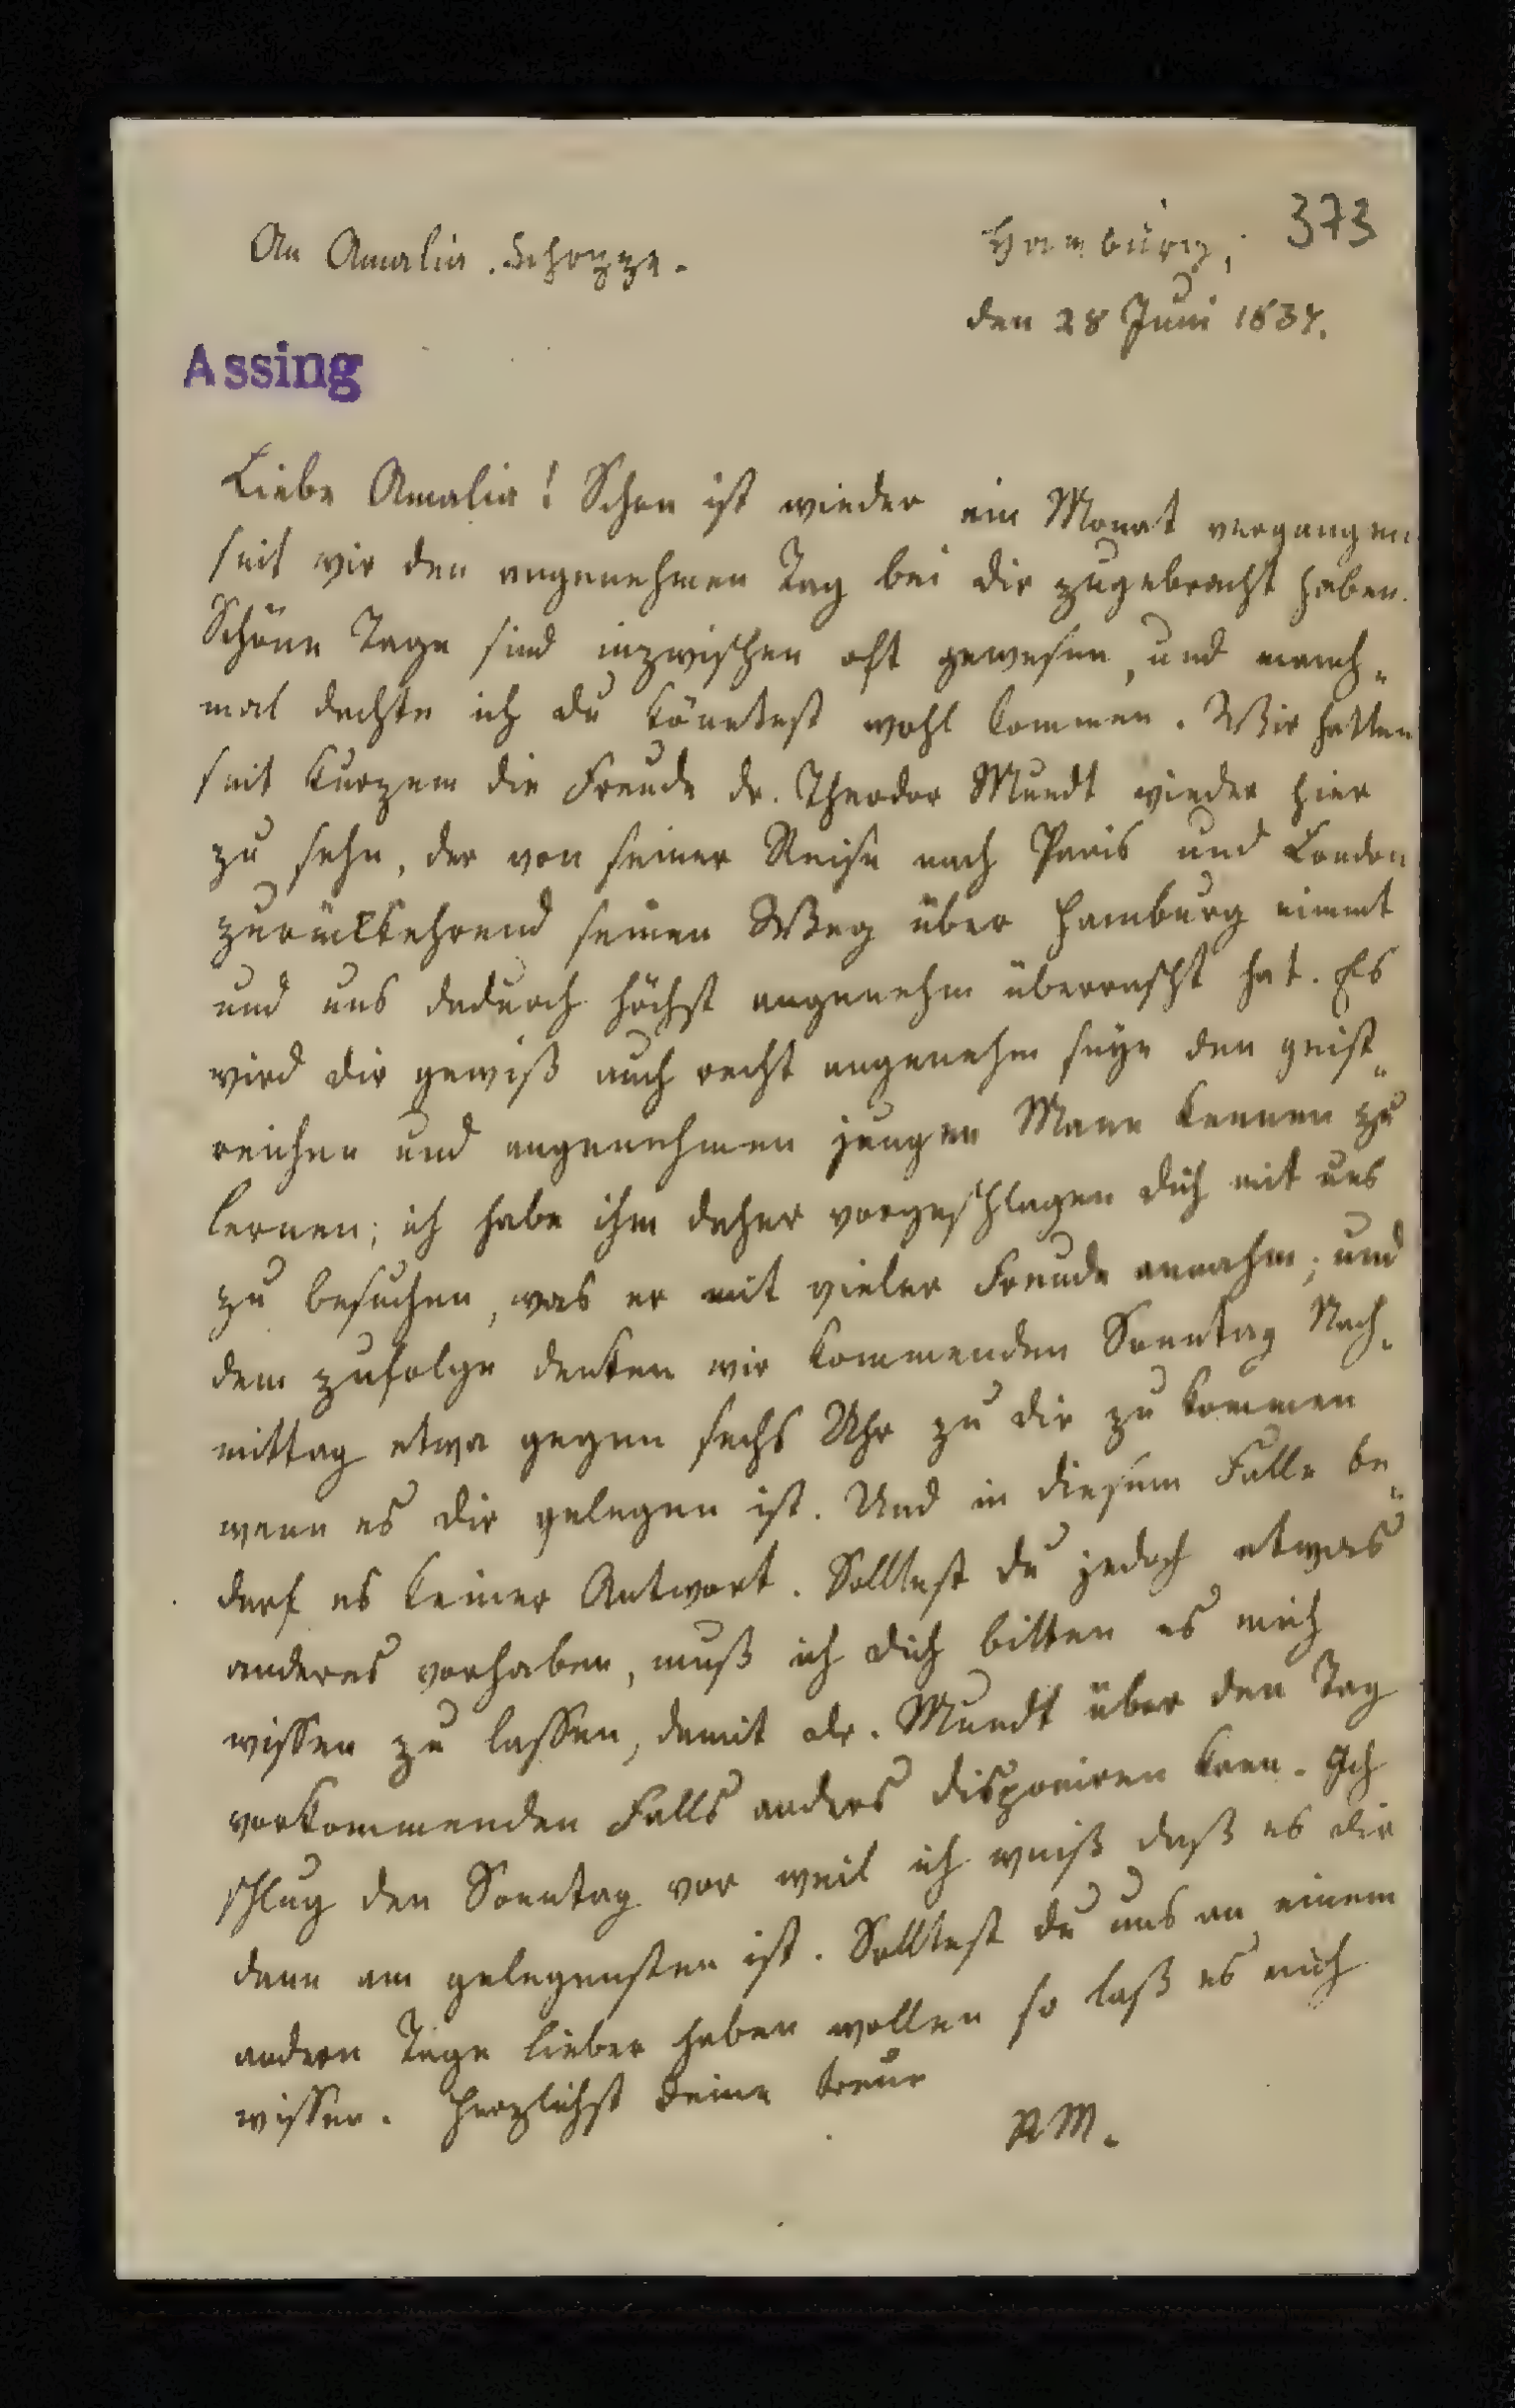 An Amalia Schoppe.
Hamburg, 373
den 28 Juni 1837.
Assing
Liebe Amalia! Schon ist wieder ein Monat vergangen
seit wir den angenehmen Tag bei dir zugebracht haben.
Schöne Tage sind inzwischen oft gewesen, und manch-
mal dachte ich du könntest wohl kommen. Wir hatten
seit Kurzem die Freude dr. Theodor Mundt wieder hier
zu sehn, der von seiner Reise nach Paris und London
zurückkehrend seinen Weg über Hamburg nimmt
und uns dadurch höchst angenehm überrascht hat. Es
wird dir gewiß auch recht angenehm seyn den geist-
reichen und angenehmen jungen Mann kennen zu
lernen; ich habe ihm daher vorgeschlagen dich mit uns
zu besuchen, was er mit vieler Freude annahm; und
dem zufolge denken wir kommenden Sonntag Nach-
mittag etwa gegen sechs Uhr zu dir zu kommen
wenn es dir gelegen ist. Und in diesem Falle be-
darf es keiner Antwort. Solltest du jedoch etwas
anderes vorhaben, muß ich dich bitten es mich
wissen zu lassen, damit dr. Mundt über den Tag
vorkommenden Falls anders disponiren kann. Ich
schlug den Sonntag vor weil ich weiß daß es dir
dann am gelegensten ist. Solltest du uns an einem
andern Tage lieber haben wollen so laß es mich
wissen. Herzlichst deine treue
RM.